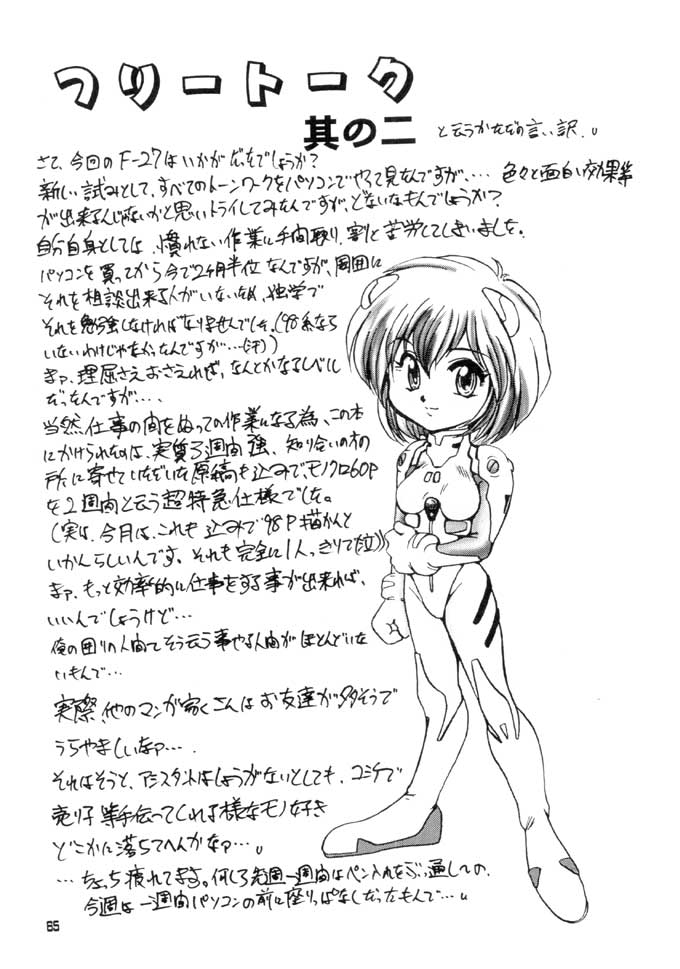 フリートーク
其の二
と云うかただの言い訳.。
さて、今回のF-27はいかがだったでしょうか?
新しい試みとして、すべてのトーンワークをパソコンでやって見たんですが、… 色々と面白い効果等
が出来るんじゃないかと思いトライしてみたんですが、どないなもんでしょうか?
自分自身としては、慣れない作業に手間取り、割と苦労してしまいました。
パソコンを買ってから今で2ヶ月半位なんですが、周囲に
それを相談出来る人がいないため、独学で
それを勉強しなければなりませんでした。(98系なら
いないわけじゃなかったんですが…(汗))
まァ、理屈さえおさえれば、なんとかなるレベル
だったんですが….
当然、仕事の間をぬっての作業になる為、この本
にかけられたのは、実質3週間強、知り合いの方の
所に寄せていただいた原稿も込みで、モノクロ60P
を2週間と云う超特急仕様でした。
(実は、今月は、これも込みで98P描かんと
いかんらしいんです。それも完全に1人っきりで(泣))
まァ、もっと効率的に仕事をする事が出来れば、
いいんでしょうけど…
俺の囲りの人間でそう云う事やる人間がほとんどいな
いもんで…
実際、他のマンガ家くさんはお友達が多そうで
うらやましいなァ….
それはそうと、アシスタントはしょうがないとしても、コミケで
売り子等手伝ってくれる様なモノ好き
どこかに落ちてへんかなァ…。
…ちょっち疲れてます。何しろ先週一週間はペン入れをぶっ通しで、
今週は一週間パソコンの前に座りっぱなしだったもんで…。
65